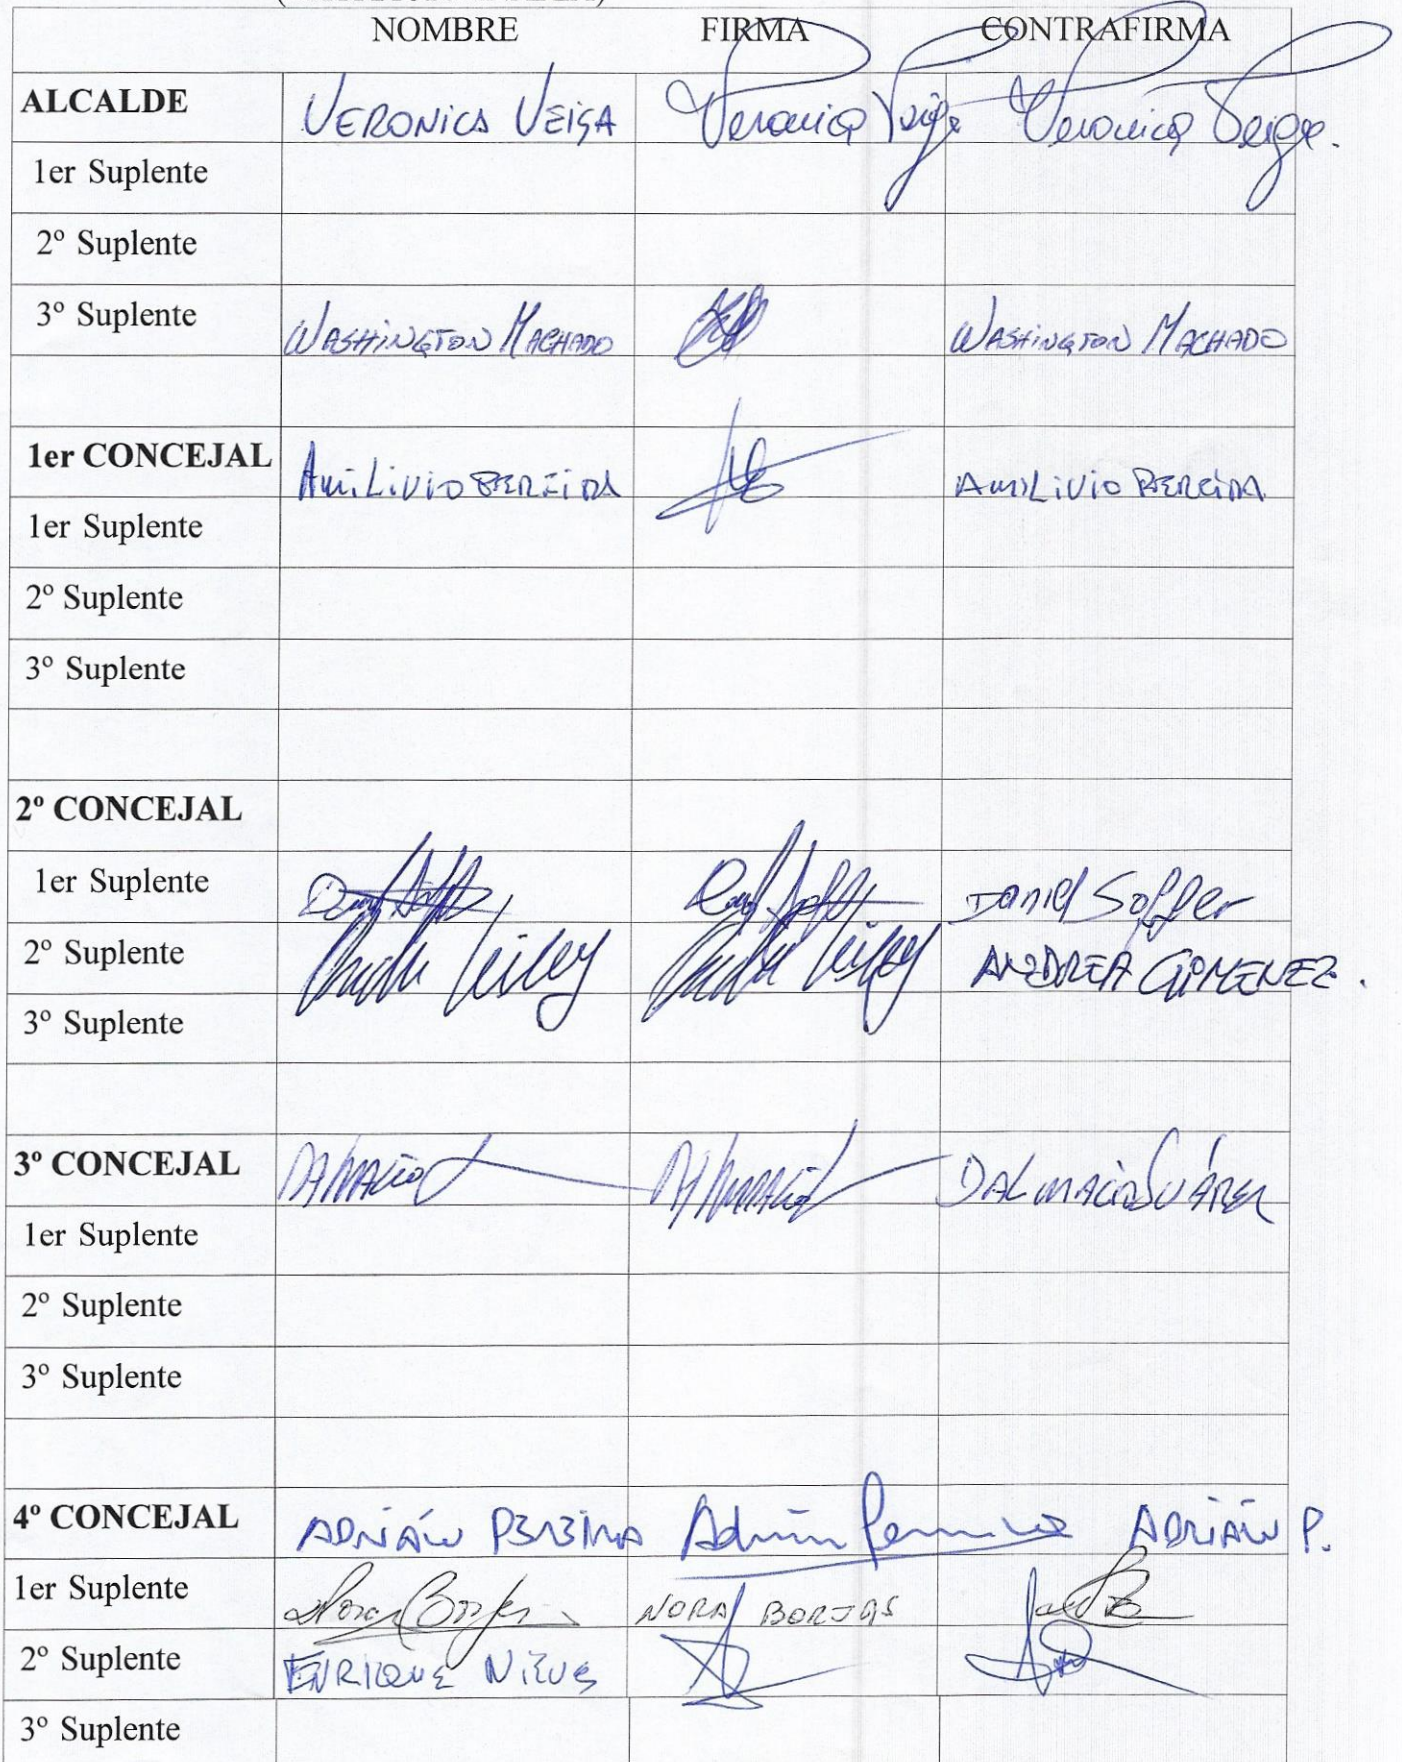 NOMBRE FIRMA CONTRAFIRMA
ALCALDE VERONICA VEIGA Veronica Veiga Veronica Veiga.
1er Suplente
2º Suplente
3º Suplente WASHINGTON MACHADO WASHINGTON MACHADO
1er CONCEJAL AMILIVIO PEREIRA AMILIVIO PEREIRA
1er Suplente
2º Suplente
3º Suplente
2º CONCEJAL
1er Suplente Daniel Soffer
2º Suplente ANDREA GIMENEZ.
3º Suplente
3º CONCEJAL DALMACIO SUÁREZ
1er Suplente
2º Suplente
3º Suplente
4º CONCEJAL ADRIÁN PEREIRA ADRIÁN P.
1er Suplente Nora Borjas NORA BORJAS
2º Suplente ENRIQUE NIEVES
3º Suplente